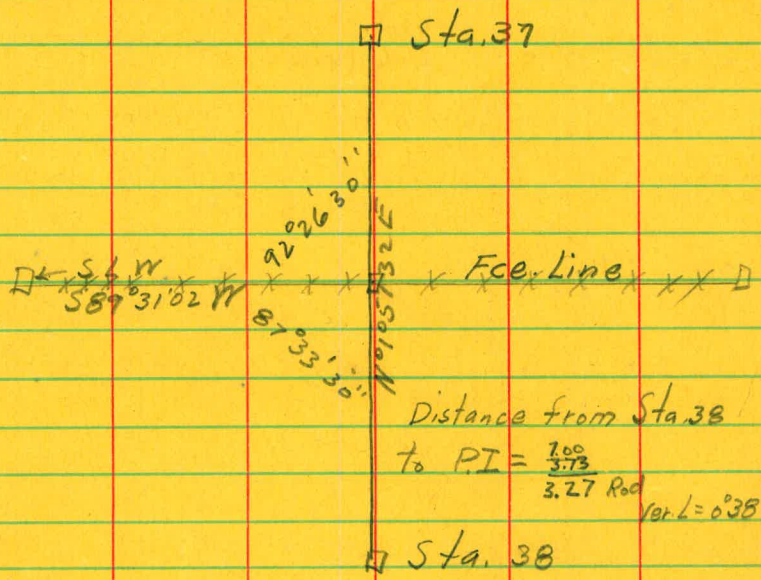 Sta. 37
92°26'30"
N 1°57'32 E
Fce. Line
S89°31'02 W
87°33'30"
Distance from Sta. 38
to P.I = 7.00
3.73
3.27 Rod
Ver. L = 0°38
Sta. 38